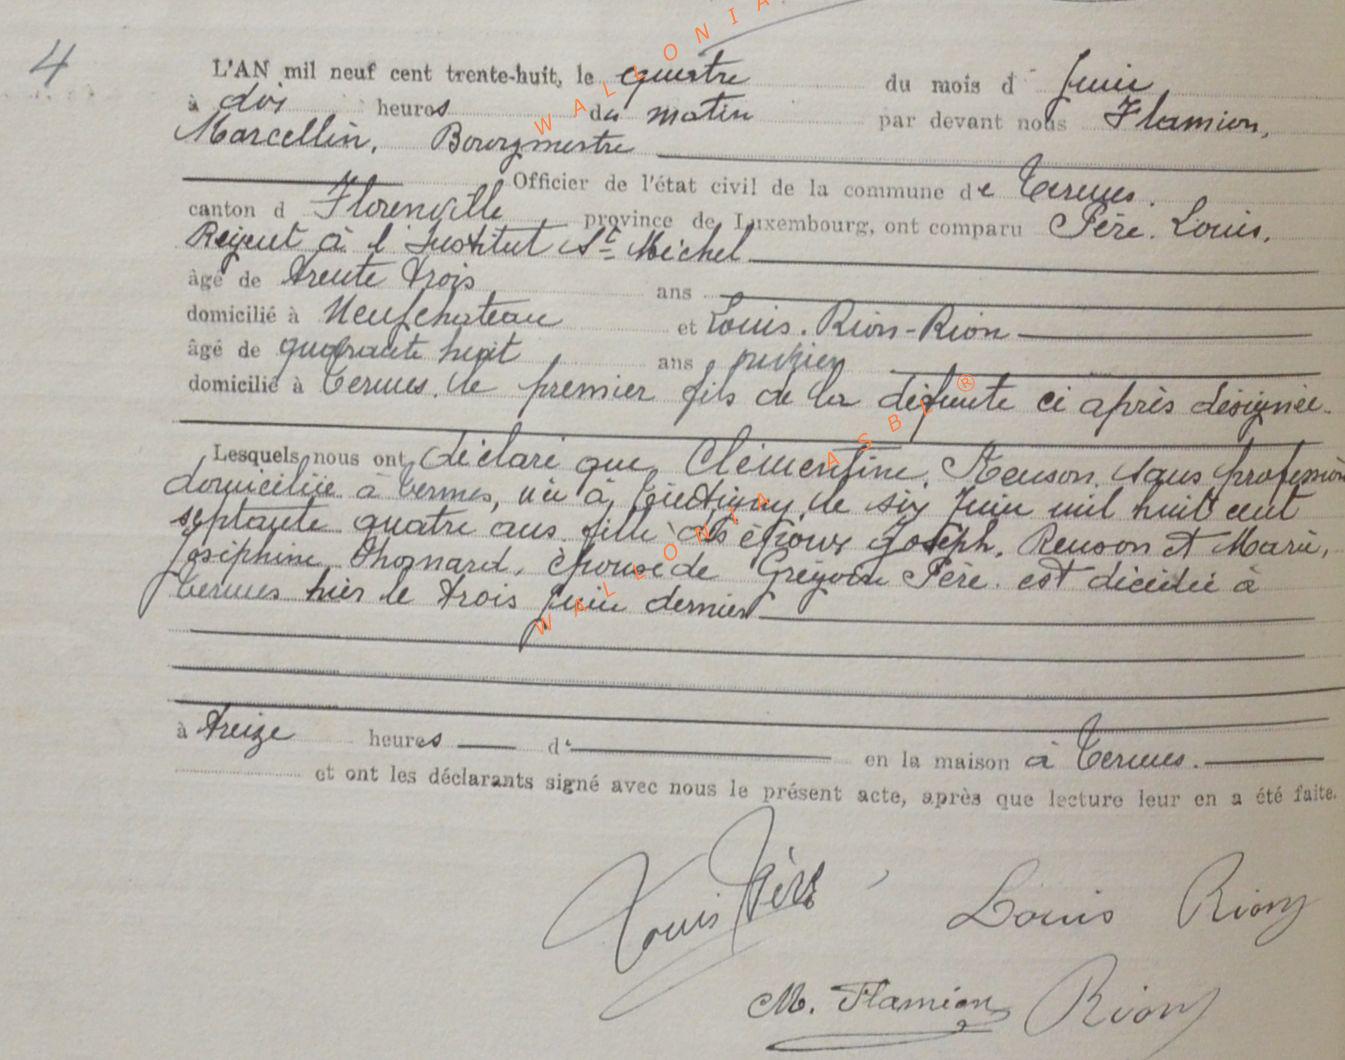 4
L'AN mil neuf cent trente-huit, le quatre du mois d Juin
à dix heures du matin par devant nous Flamion,
Marcellin, Bourgmestre
Officier de l'état civil de la commune de Termes.
canton d Florenville, province de Luxembourg, ont comparu Père. Louis.
Régent à l'Institut St Michel
âgé de trente trois ans
domicilié à Neufchateau et Louis. Rion-Rion
âgé de quarante huit ans
domicilié à Termes. le premier fils de la défunte ci après désignée.
Lesquels nous ont déclaré que, Clémentine, Renson, sans profession
domiciliée à Termes, née à, le six Juin mil huit cent
septante quatre ans. fille des époux Joseph. Renson et Marie,
Joséphine, Thomard, épouse de Grégoire Père. est décédée à
Termes hier le trois Juin dernier
à treize heures d' en la maison à Termes.
et ont les déclarants signé avec nous le présent acte, après que lecture leur en a été faite.
Louis Père Louis Rion
M. Flamion Rion
WALLONIA
WALLONIA ASBL ®